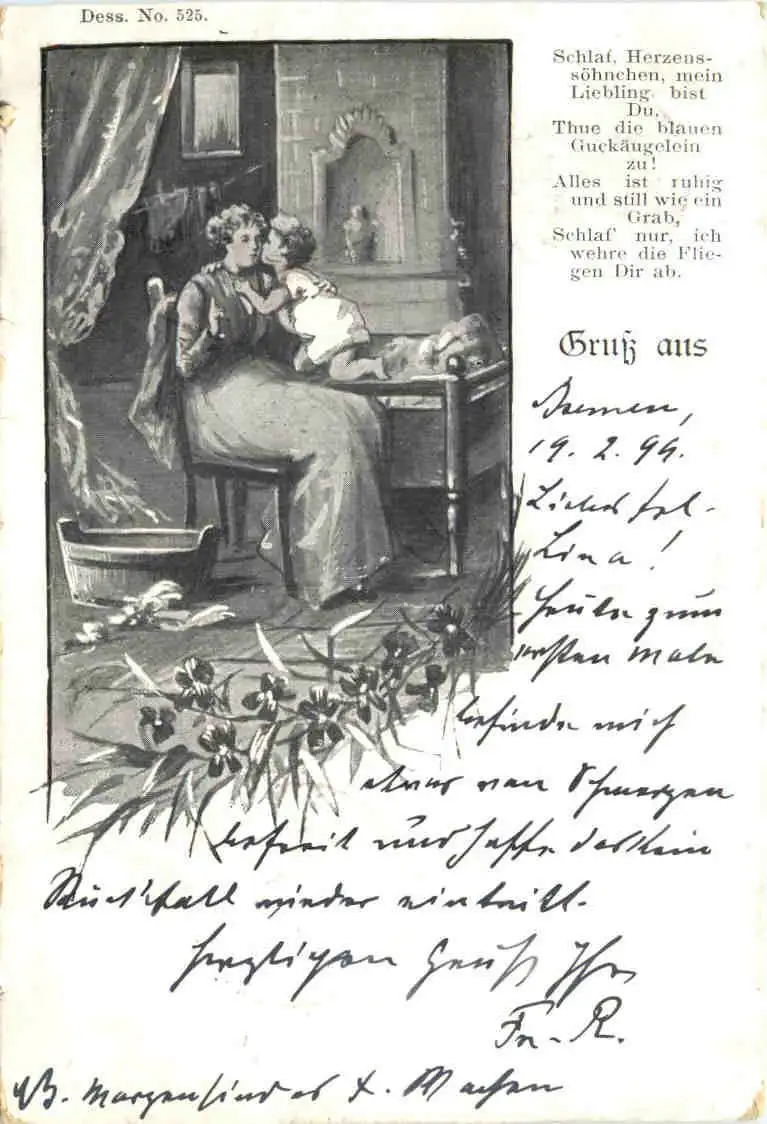 Dess. No. 525.
Schlaf, Herzens-
söhnchen, mein
Liebling bist
Du,
Thue die blauen
Guckäugelein
zu!
Alles ist ruhig
und still wie ein
Grab,
Schlaf' nur, ich
wehre die Flie-
gen Dir ab.
Gruß aus
Bremen,
19. 2. 99.
Liebes Frl.
Lina!
Heute zum
ersten Male
befinde mich
etwas von Schmerzen
befreit und hoffe das kein
Rückfall wieder eintritt.
herzlichen Gruß Ihr
R.
NB. Morgen sind es Wochen